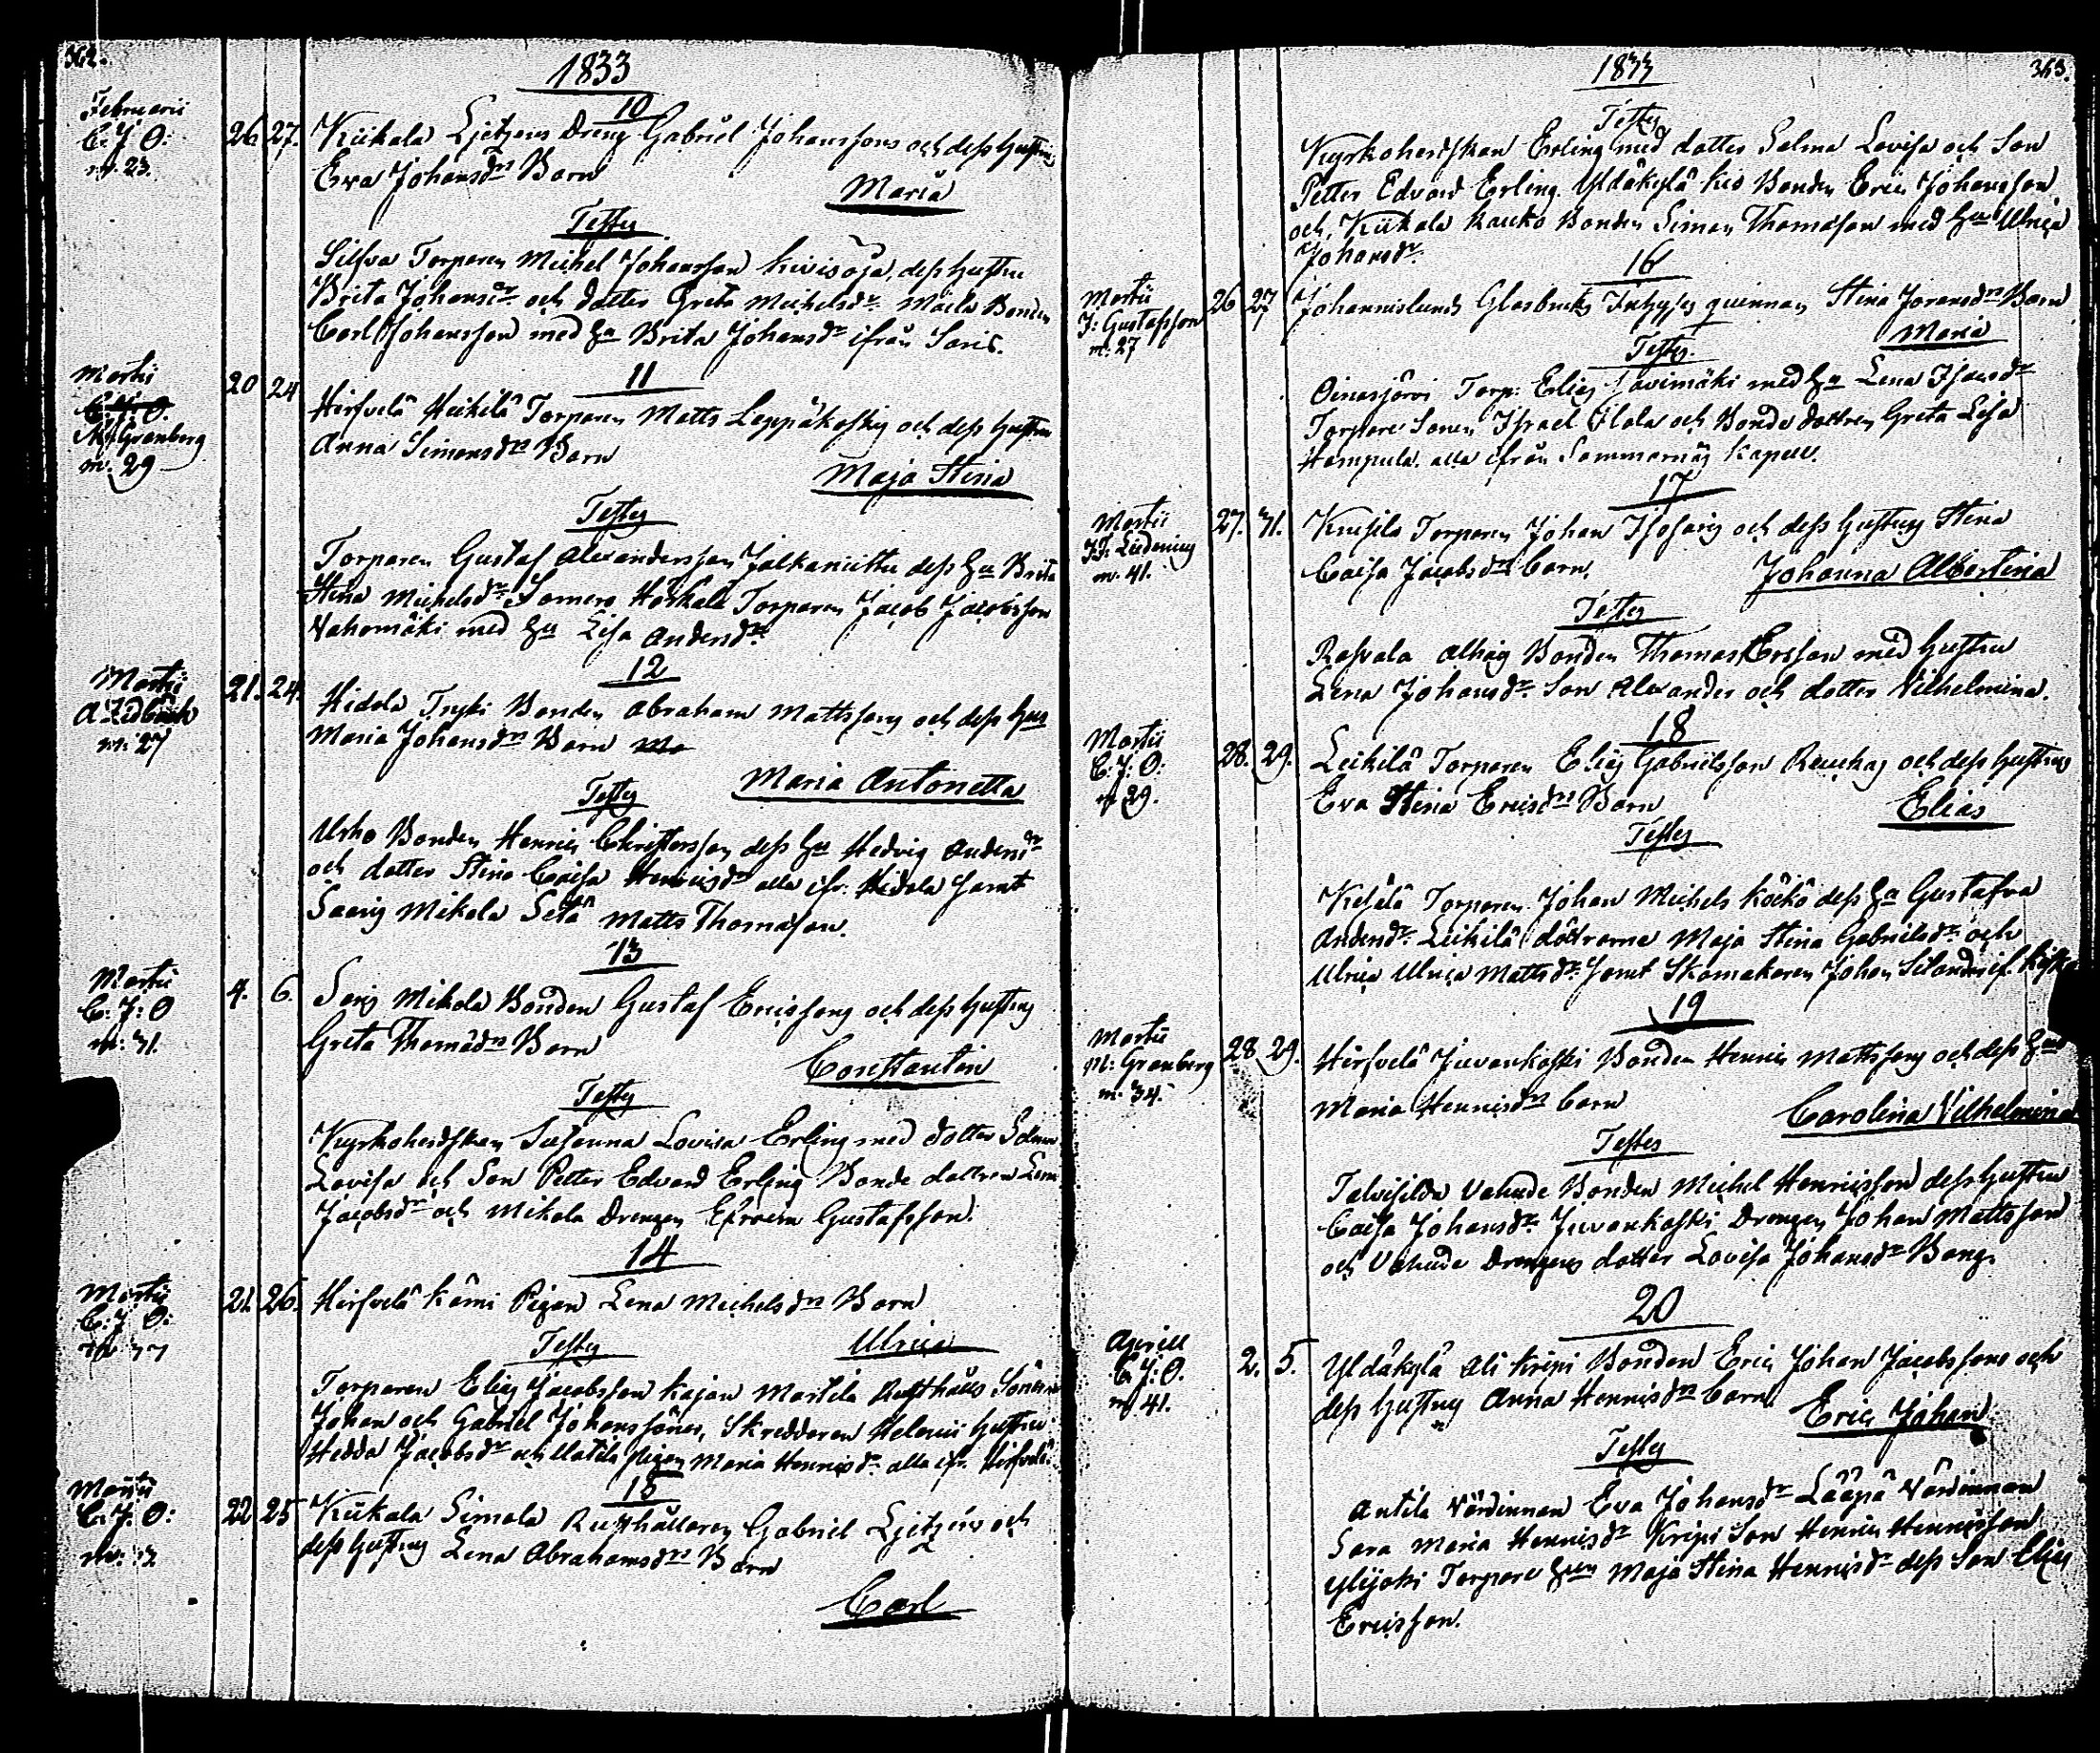 362.
1833
10
Februarii
C: J: O:
m. 23.
26. 27.
Kiikala Ljetzens Dreng Gabriel Johanssons och dess hustrus
Eva Johansdrs Barn
Maria
Testes
Torparen Michel Johansson Kivisoja, dess hustru
Brita Johansdr och dotter Greta Michelsdr Bonden
Carl Johansson med hu Brita Johansdr ifrån Saris.
11
Martii
C: J: O.
Granberg
m. 29
20 24
Hirsvelä Heikilä Torparen Matts Leppäkoskis och dess hustrus
Anna Simonsdrs Barn
Maja Stina
Testes
Torparen Gustaf Alexandersson Jalkaniittu dess hu Brita
Stina Michelsdr, Somero Härkälä Torparen Jacob Jacobsson
Vahomäki med hu Lisa Andersdr
12
Martii
m. 27
21. 24.
Hidola Bonden Abraham Mattssons och dess hus
Maria Johansdrs Barn Ma
Maria Antonetta
Testes
Bonden Henric Christersson dess hu Hedvig Andersdr
och dotter Stina Caisa Henricsdr alla ifr. Hidola samt
Saaris Mikola Matts Thomasson.
13
Martii
C: J: O
m: 31.
4. 6.
Saris Mikola Bonden Gustaf Ericssons och dess hustrus
Greta Thomædrs Barn
Constantin
Testes
Kyrkoherdskan Susanna Lovisa Erling med dotter
Lovisa och Son Petter Edvard Erling Bonde dottren
Jacobsdr och Mikola Drengen Efraim Gustafsson.
14
Martii
C: J: O:
21. 26.
Hirsvelä Kämi Pigan Lena Michelsdrs Barn
Ulrica
Testes
Torparen Elias Jacobsson Kajan Martila Rusthålls Sönerne
Johan och Gabriel Johanssöner, Skreddaren Helenii hustru
Hedda Jacobsdr och Pigan Maria Henricsdr alla ifr. Hirsvelä.
15
Martii
C: J: O:
22 25
Kiikala Simola Rusthållaren Gabriel Ljetzéns och
dess hustrus Lena Abrahamsdrs Barn
Carl
363.
1833
Testes
Kyrkoherdskan Erling med dotter Selma Lovisa och Son
Petter Edvard Erling. Yldäkylä Bonden Eric Johansson
och Kiikala Rauko Bonden Simon Thomasson med hu Ulrica
Johansdr.
16
Martii
J: Gustafsson
m: 27
26 27
Johannislunds Glasbruks Inhyses quinnan Stina Joransdrs Barn
Maria
Testes
Oinasjärvi Torp: Elias Savimäki med hu Lena Isacsdr
Torpare Sonen Israel och Bonde dottren Greta Lisa
Hampula. alla ifrån Sommarnäs Kapell.
17
Martii
m. 41.
27. 31.
Torparen Johan och dess hustrus Stina
Caisa Jacobsdrs barn.
Johanna Albertina
Testes
Rasvala Alhais Bonden Thomas Ersson med hustru
Lena Johansdr. Son Alexander och dotter Vilhelmina.
18
Martii
C: J: O:
m 29.
28. 29.
Leikilä Torparen Elias Gabrielsson och dess hustrus
Eva Stina Ericsdrs Barn
Elias
Testes
Torparen Johan Michels Köökö dess hu Gustafva
Andersdr. Leikilä döttrarne Maja Stina Gabrielsdr. och
Ulrica Ulrica Mattsdr. samt Skomakaren Johan
19
Martii
M: Granberg
m. 34.
28. 29.
Hirsvelä Juvankoski Bonden Henric Mattssons och dess hus
Maria Henricsdrs barn
Carolina Vilhelmina
Testes
Talvisilda Vahude Bonden Michel Henricsson dess hustru
Caisa Johansdr. Juvankoski Drengen Johan Mattsson
och Vahude Drengens dotter Lovisa Johansdr Bang.
20
Aprill
C. J: O.
m 41.
2. 5.
Yldäkylä Ali Kripi Bonden Eric Johan Jacobssons och
dess hustrus Anna Henricsdrs barn.
Eric Johan.
Testes
Antila Värdinnan Eva Johansdr Lääpä Värdinnan
Sara Maria Henricsdr Kripi Son Henric Henricsson
Ylijoki Torpare hun Maja Stina Henricsdr dess Son Elias
Ericsson.